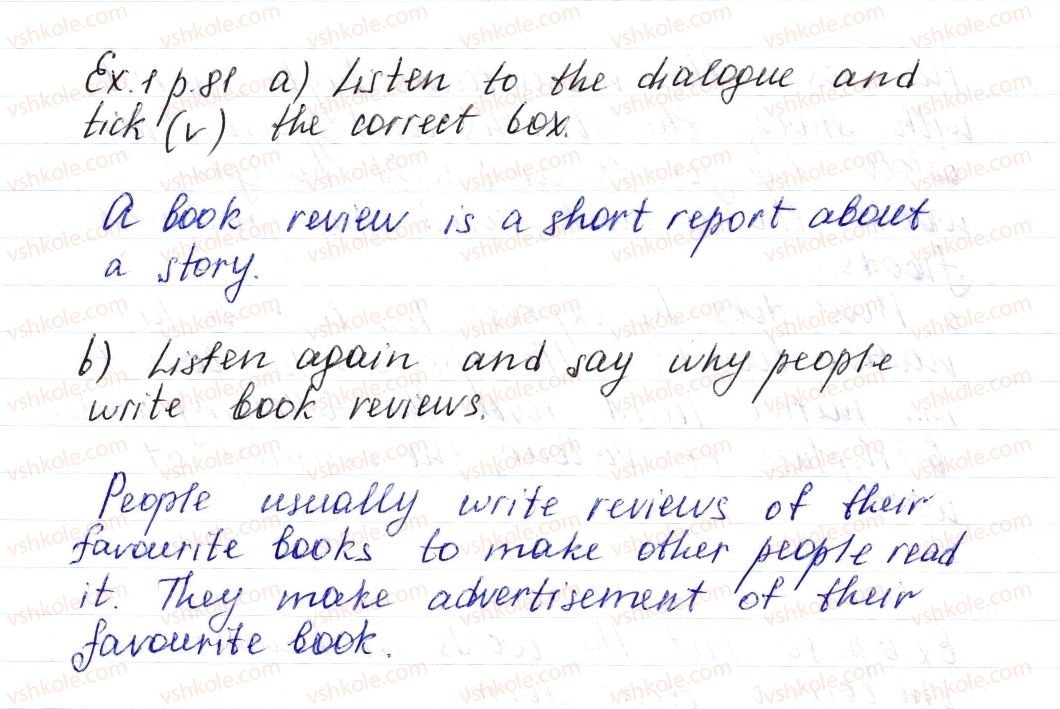 Ex. 1 p. 81 a) Listen to the dialogue and
tick (v) the correct box.
A book review is a short report about
a story.
b) Listen again and say why people
write book reviews.
People usually write reviews of their
favourite books to make other people read
it. They make advertisement of their
favourite book.